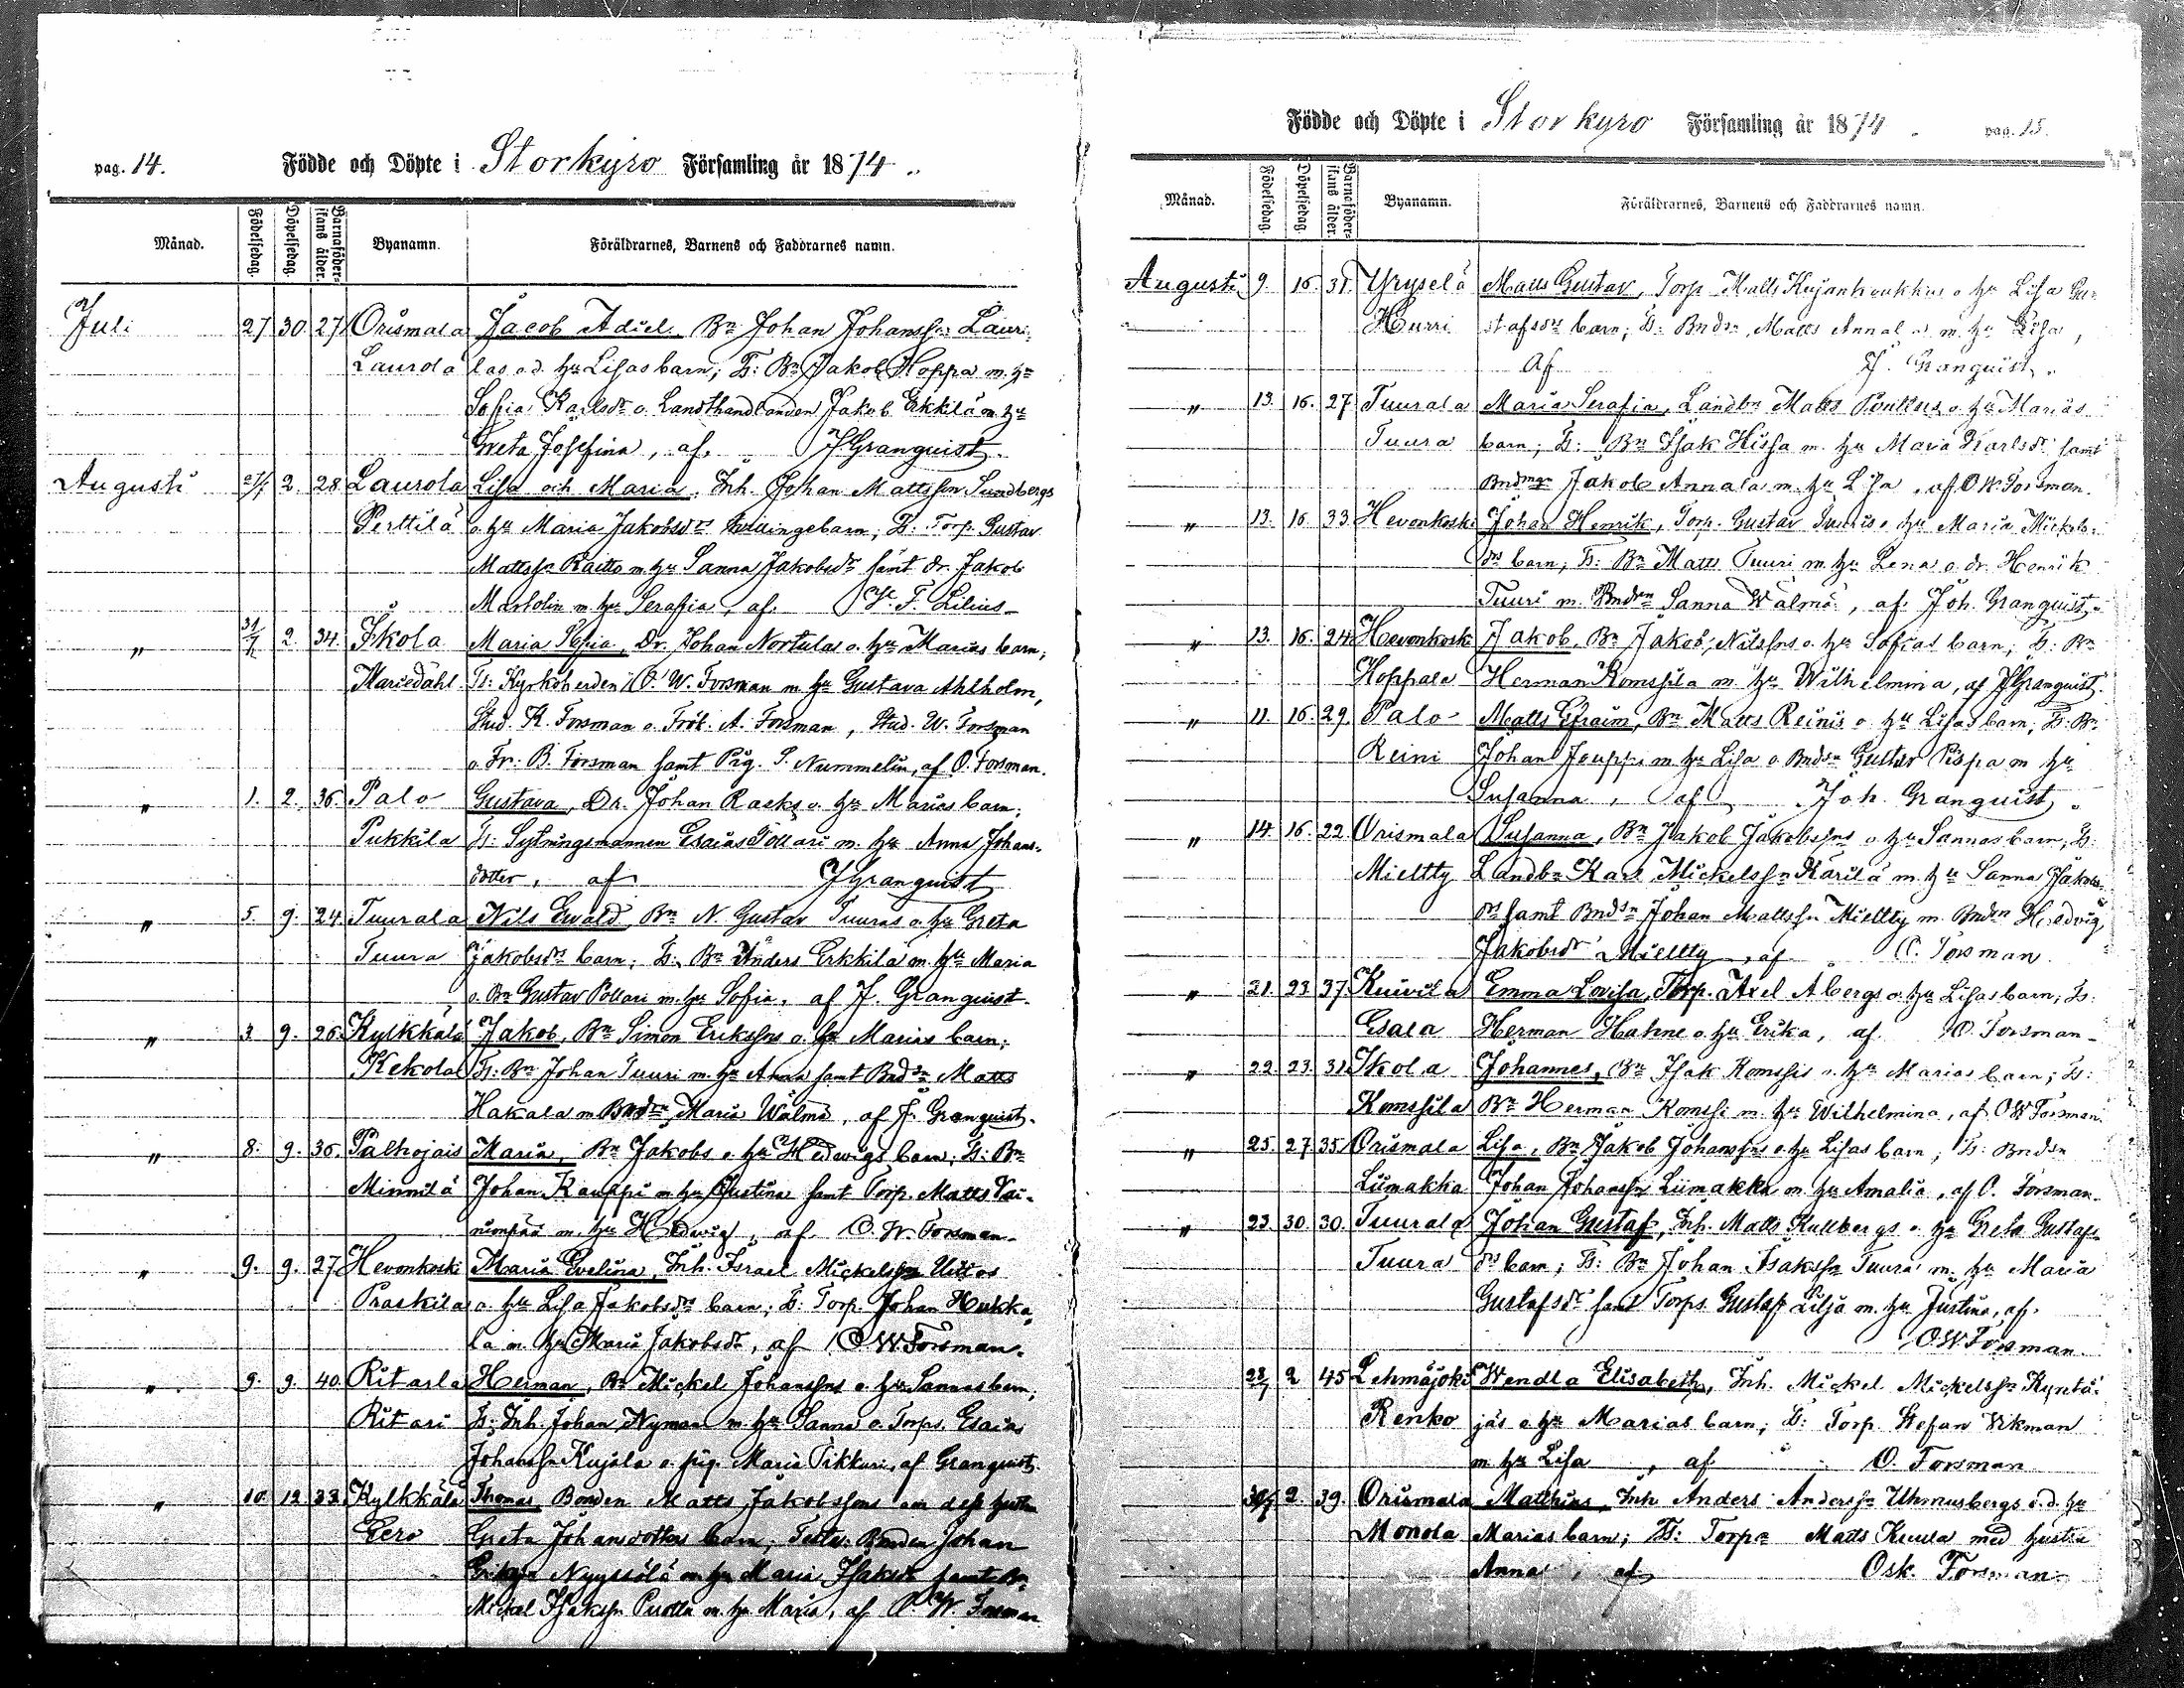 pag. 14. Födde och Döpte i Storkyro Församling år 1874.
Månad. Födelsedag. Döpelsedag. Barnaföderskans ålder. Byanamn. Föräldrarnes, Barnens och Faddrarnes namn.
Juli 27 30. 27 Orismala Jacob Adiel Bn Johan Johanssn Lauri-
Laurola las o.d. hu Lisas barn; Ts: Bn Jakob Hoppa m. hu
Sofia Karlsdr o. Landthandlanden Jakob Ekkilä m. hu
Greta Josefina, af. J Granquist.
Augusti 2. 28 Laurola Lisa och Maria, Inh. Johan Mattsson Sundbergs
Perttilä o. hu Maria Jakobsdrs tvillingebarn; Ts: Torp. Gustav
Mattssn Raitto m. hu Sanna Jakobsdr samt dr. Jakob
Marbolin m. hu Serafia, af. F. Lilius
" 31/7 2. 34. Ikola Maria Sofia, Dr. Johan Nortulas o. hu Marias barn;
Mariedahl Ts: Kyrkoherden O. W. Forsman m hu Gustava Ahlholm,
Stud. K. Forsman o. Frök. A. Forsman, Stud. W. Forsman
o. Fr. B. Forsman samt Pig. S. Nummelin, af O. Forsman.
" 1. 2. 36. Palo Gustava, Dr. Johan Racks o. hu Marias barn;
Pukkila Ts: Sytningsmannen Esaias Pollari m. hu Anna Johans-
dotter, af J Granquist
" 5. 9. 24. Tuurala Nils Ewald, Bn N. Gustav Tuuras o. hu Greta
Tuura Jakobsdrs barn; Ts: Bn Anders Erkkilä m. hu Maria
o. Bn Gustav Pollari m. hu Sofia, af J. Granquist.
" 3. 9. 26. Kylkkälä Jakob, Bn Simon Erikssns o. hu Marias barn;
Kekola Ts: Bn Johan Tuuri m. hu Anna samt Bndsn Matts
Hakala m Bndr Maria Wälmä, af J. Granquist.
" 8. 9. 36. Palhojais Maria, Bn Jakobs o. hu Hedwigs barn; Ts: Bn
Minnilä Johan Kauppi m. hu Justina samt Torp. Matts Vai-
nimpää m. hu Hedwig, af. O. W. Forsman.
" 9. 9. 27 Hevonkoski Maria Evelina, Inh. Israel Mickelssn Uittos
Praskila o. hu Lisa Jakobsdrs barn; Ts: Torp. Johan Hukka-
la m. hu Maria Jakobsdr, af O W. Forsman.
" 9. 9. 40. Ritarla Herman, Bn Mickel Johanssns o. hu Sannas barn;
Ritari Ts: Inh. Johan Nyman m. hu Sanna o. Torps. Esaias
Johanssn Kujala o. pig. Maria Pikkuri, af Granquist.
" 10. 12. 33. Kylkkälä Thomas, Bonden Matts Jakobssons och dess hustru
Eero Greta Johansdotters barn; Test: Bonden Johan
Nyyssölä m. hu Maria Isaksdr samt Bn
Mickel Isakssn Puolla m. hu Maria, af O. W. Forsman
Födde och Döpte i Storkyro Församling år 1874. pag. 15.
Månad. Födelsedag. Döpelsedag. Barnaföderskans ålder. Byanamn. Föräldrarnes, Barnens och Faddrarnes namn.
Augusti 9. 16. 31. Yryselä Matts Gustav, Torp. Matts Kujankoukkus o. hu Lisa Gu-
Hurri stafsdrs barn; Ts: Bndsn Matts Annala m. hu Lisa,
af J. Granquist.
" 13. 16. 27 Tuurala Maria Serafia, Landbn Matts Pouttus o. hu Marias
Tuura barn; Ts: Bn Isak Hissa m. hu Maria Karlsdr samt
Bndmgn Jakob Annala m. hu Lisa, af O W. Forsman.
" 13. 16. 33. Hevonkoski Johan Henrik, Torp. Gustav Tuuris o. hu Maria Mickels-
drs barn; Ts: Bn Matts Tuuri m. hu Lena o. dr. Henrik
Tuuri m. Bndr Sanna Wälmä, af Joh. Granquist.
" 13. 16. 24. Hevonkoski Jakob, Bn Jakob Nilssns o. hu Sofias barn; Ts: Bn
Hoppala Herman Komssila m. hu Wilhelmina, af J Granquist.
" 11. 16. 29. Palo Matts Efraim, Bn Matts Reinis o. hu Lisas barn; Ts: Bn
Reini Johan Jouppi m. hu Lisa o. Bndsn Gustav Pispa m hu
Susanna, af Joh. Granquist.
" 14. 16. 22. Orismala Susanna, Bn Jakob Jakobssns o hu Sannas barn; Ts:
Mieltty Landbn Karl Mickelssn Karilä m. hu Sanna Jakobs-
dr samt Bndsn Johan Mattssn Mieltty m. Bndr Hedvig
Jakobsdr Mieltty, af O. Forsman.
" 21. 23. 37. Kuivila Emma Lovisa, Torp. Axel Abergs o. hu Lisas barn; Ts:
Esala Herman Hahne o. hu Erika, af. O. Forsman
" 22. 23. 31. Ikola Johannes, Bn Isak Komssis o. hu Marias barn; Ts:
Komssila Bn Herman Komssi m. hu Wilhelmina, af O W Forsman.
" 25. 27. 35. Orismala Lisa, Bn Jakob Johanssns o. hu Lisas barn; Ts: Bndsn
Liimakka Johan Johanssn Liimakka m. hu Amalia, af O. Forsman.
" 23. 30. 30. Tuurala Johan Gustaf, Inh. Matts Kullbergs o. hu Greta Gustafs-
Tuura drs barn; Ts: Bn Johan Isakssn Tuura m. hu Maria
Gustafsdr samt Torps. Gustaf Lilja m. hu Justina, af.
O W Forsman.
23/7 2 45 Lehmäjoki Wendla Elisabeth, Inh. Mickel Mickelssn Kyntä-
Renko jäs o. hu Marias barn; Ts: Torp. Stefan Wikman
m. hu Lisa, af O. Forsman
2. 39. Orismala Matthias, Inh Anders Anderssn Uhmusbergs o.d. hu
Monola Marias barn; Ts: Torpn Matts Kuula med hustru
Anna, af Osk. Forsman